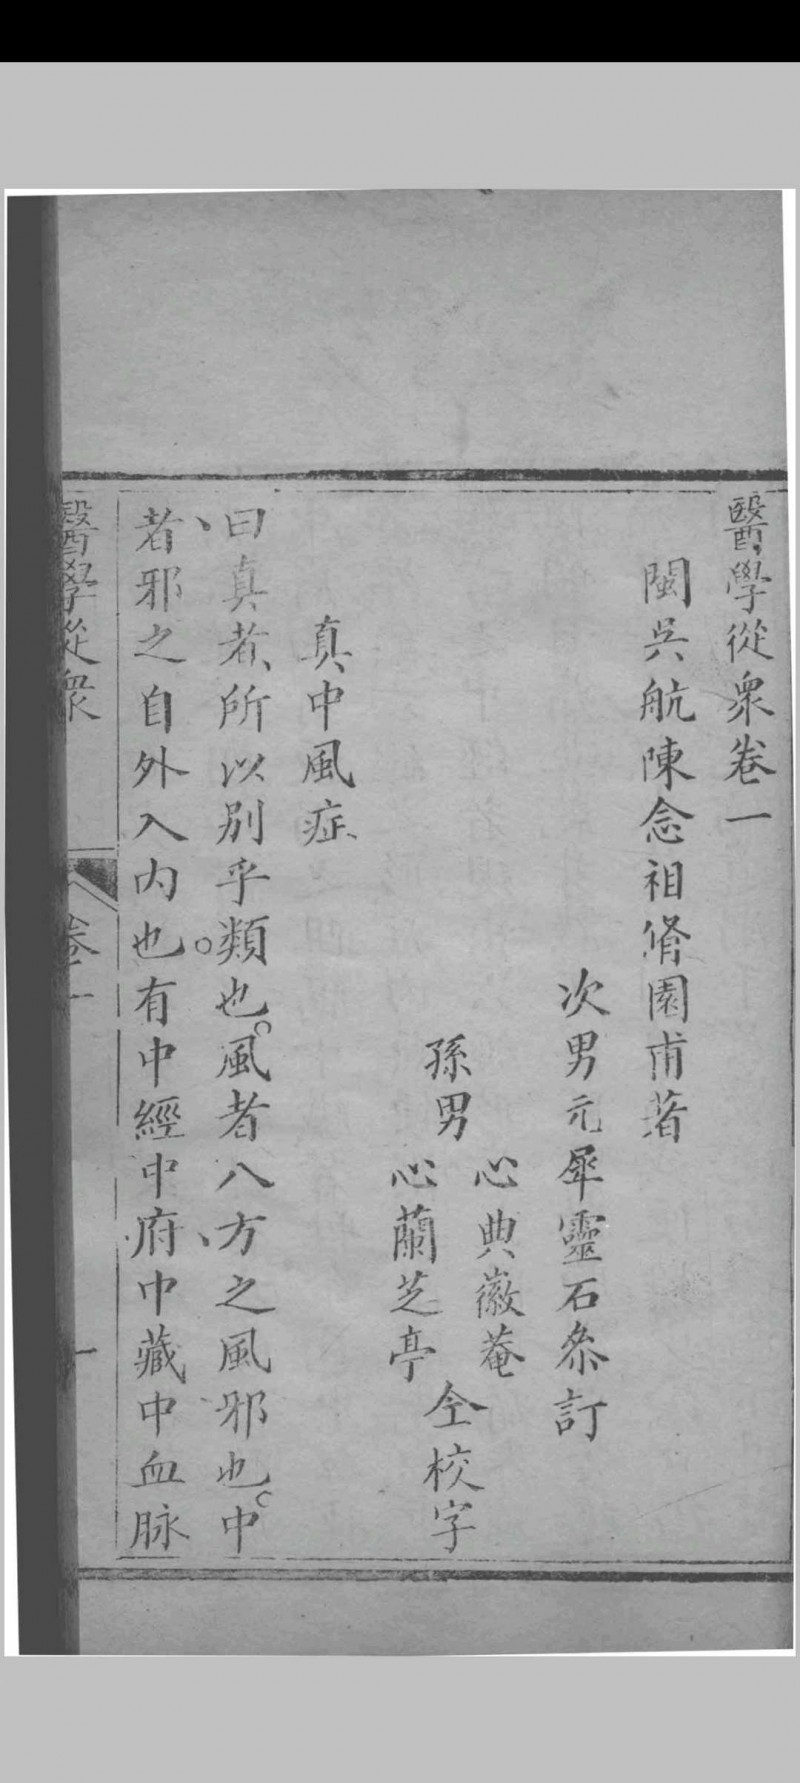 醫學從衆卷一
閩吳航陳念祖脩園甫著
次男元犀靈石叅訂
孫男
心典徽菴
心蘭芝亭
仝校字
真中風症
曰真者、所以别乎類也。風者八方之風邪也。中
者邪之自外入内也。有中經中府中藏中血脉
醫學從衆
卷一
一